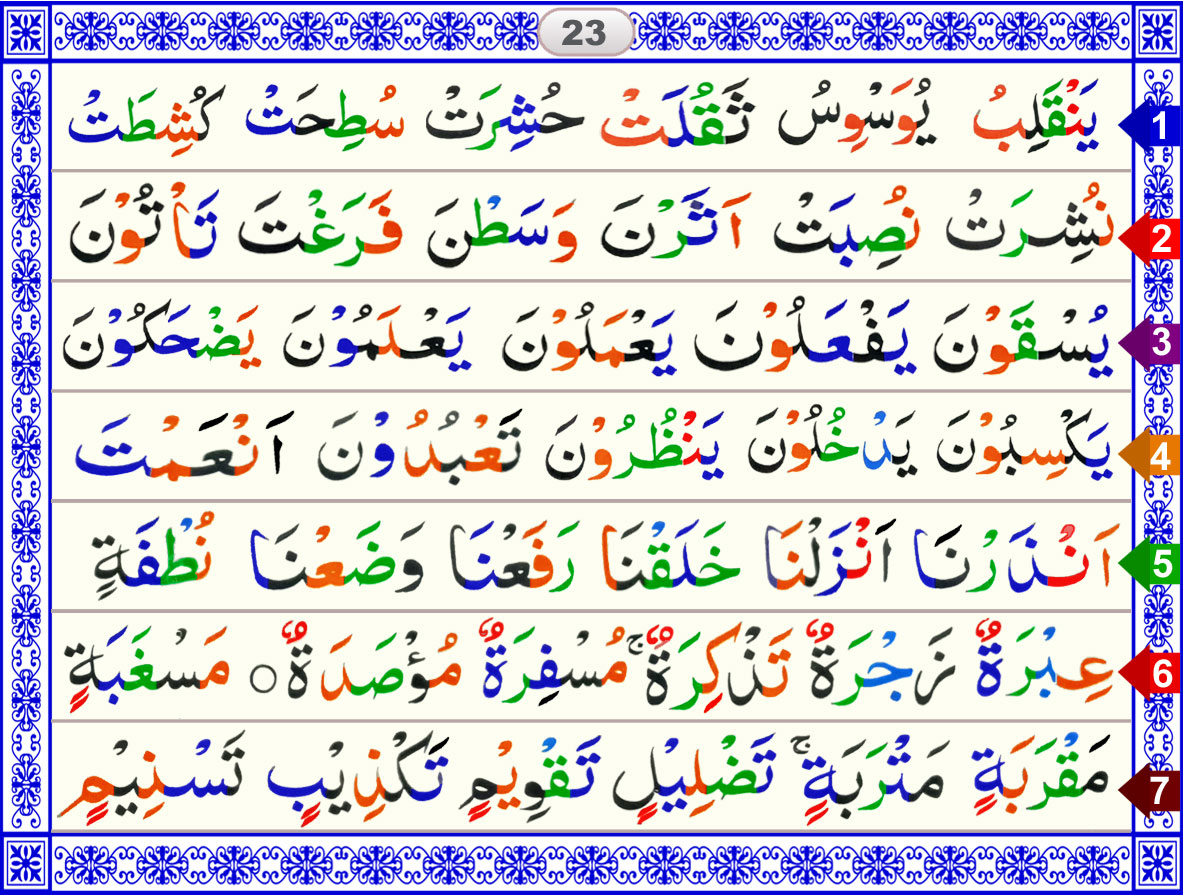 23
1 يَنْقَلِبُ يُوَسْوِسُ ثَقُلَتْ حُشِرَتْ سُطِحَتْ كُشِطَتْ
2 نُشِرَتْ نُصِبَتْ اَثَرْنَ وَسَطْنَ فَرَغْتَ تَأْتُوْنَ
3 يُسْقَوْنَ يَفْعَلُوْنَ يَعْمَلُوْنَ يَعْلَمُوْنَ يَضْحَكُوْنَ
4 يَكْسِبُوْنَ يَدْخُلُوْنَ يَنْظُرُوْنَ تَعْبُدُوْنَ اَنْعَمْتَ
5 اَنْذَرْنَا اَنْزَلْنَا خَلَقْنَا رَفَعْنَا وَضَعْنَا نُطْفَةٍ
6 عِبْرَةٌ زَجْرَةٌ تَذْكِرَةٌ ۚ مُسْفِرَةٌ مُؤْصَدَةٌ ○ مَسْغَبَةٍ
7 مَقْرَبَةٍ مَتْرَبَةٍ ۚ تَضْلِيْلٍ تَقْوِيْمٍ تَكْذِيْبٍ تَسْنِيْمٍ